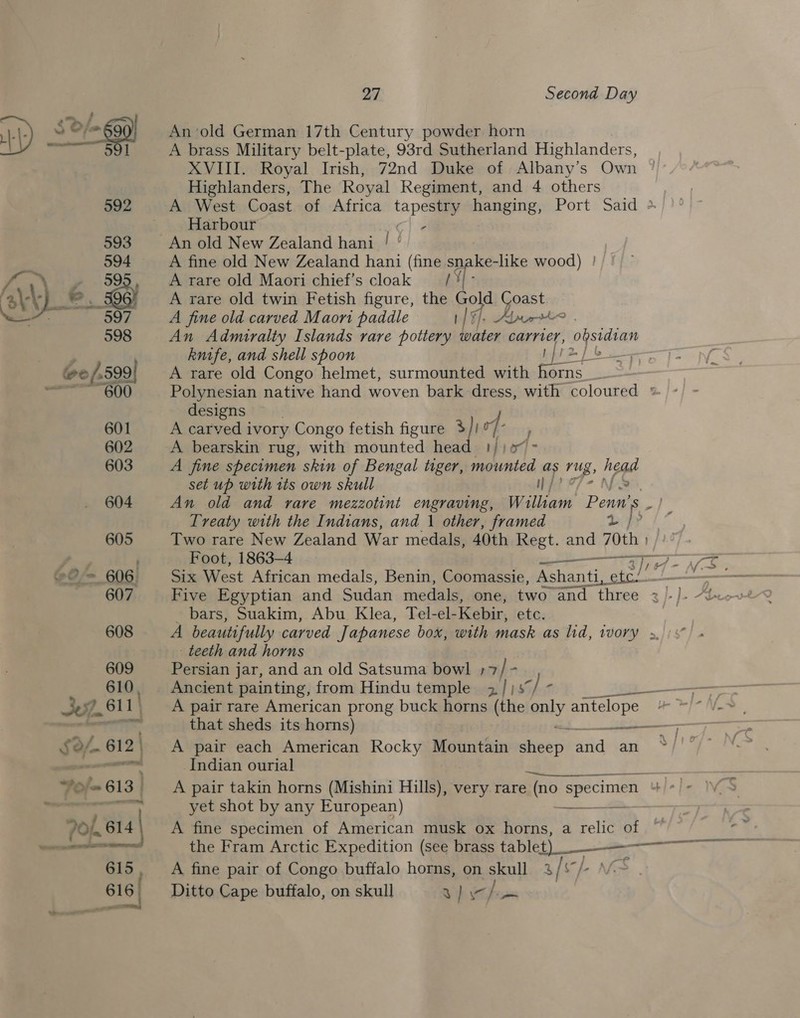 27 Second Day
50/- 690 An old German 17th Century powder horn
591 A brass Military belt-plate, 93rd Sutherland Highlanders,
XVIII. Royal Irish, 72nd Duke of Albany's Own
Highlanders, The Royal Regiment, and 4 others
592 A West Coast of Africa tapestry hanging, Port Said
Harbour
593 An old New Zealand hani
594 A fine old New Zealand hani (fine snake-like wood)
595 A rare old Maori chief's cloak
596 A rare old twin Fetish figure, the Gold Coast
597 A fine old carved Maori paddle
598 An Admiralty Islands rare pottery water carrier, obsidian
knife, and shell spoon
60/- 599 A rare old Congo helmet, surmounted with horns
600 Polynesian native hand woven bark dress, with coloured
designs
601 A carved ivory Congo fetish figure
602 A bearskin rug, with mounted head
603 A fine specimen skin of Bengal tiger, mounted as rug, head
set up with its own skull
604 An old and rare mezzotint engraving, William Penn's
Treaty with the Indians, and 1 other, framed
605 Two rare New Zealand War medals, 40th Regt. and 70th
Foot, 1863–4
60/- 606 Six West African medals, Benin, Coomassie, Ashanti, etc.
607 Five Egyptian and Sudan medals, one, two and three
bars, Suakim, Abu Klea, Tel-el-Kebir, etc.
608 A beautifully carved Japanese box, with mask as lid, ivory
teeth and horns
609 Persian jar, and an old Satsuma bowl
610 Ancient painting, from Hindu temple
611 A pair rare American prong buck horns (the only antelope
that sheds its horns)
50/- 612 A pair each American Rocky Mountain sheep and an
Indian ourial
70/- 613 A pair takin horns (Mishini Hills), very rare (no specimen
yet shot by any European)
70/- 614 A fine specimen of American musk ox horns, a relic of
the Fram Arctic Expedition (see brass tablet)
615 A fine pair of Congo buffalo horns, on skull
616 Ditto Cape buffalo, on skull